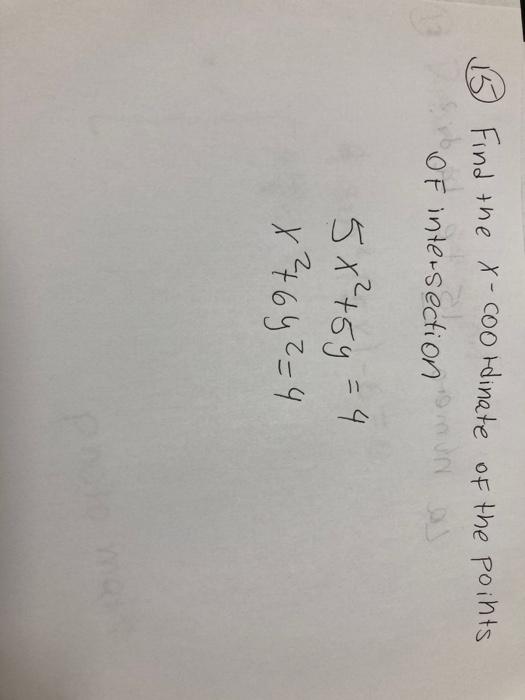 15 Find the x-coordinate of the points
of intersection
5x²+5y=4
x²+6y²=4